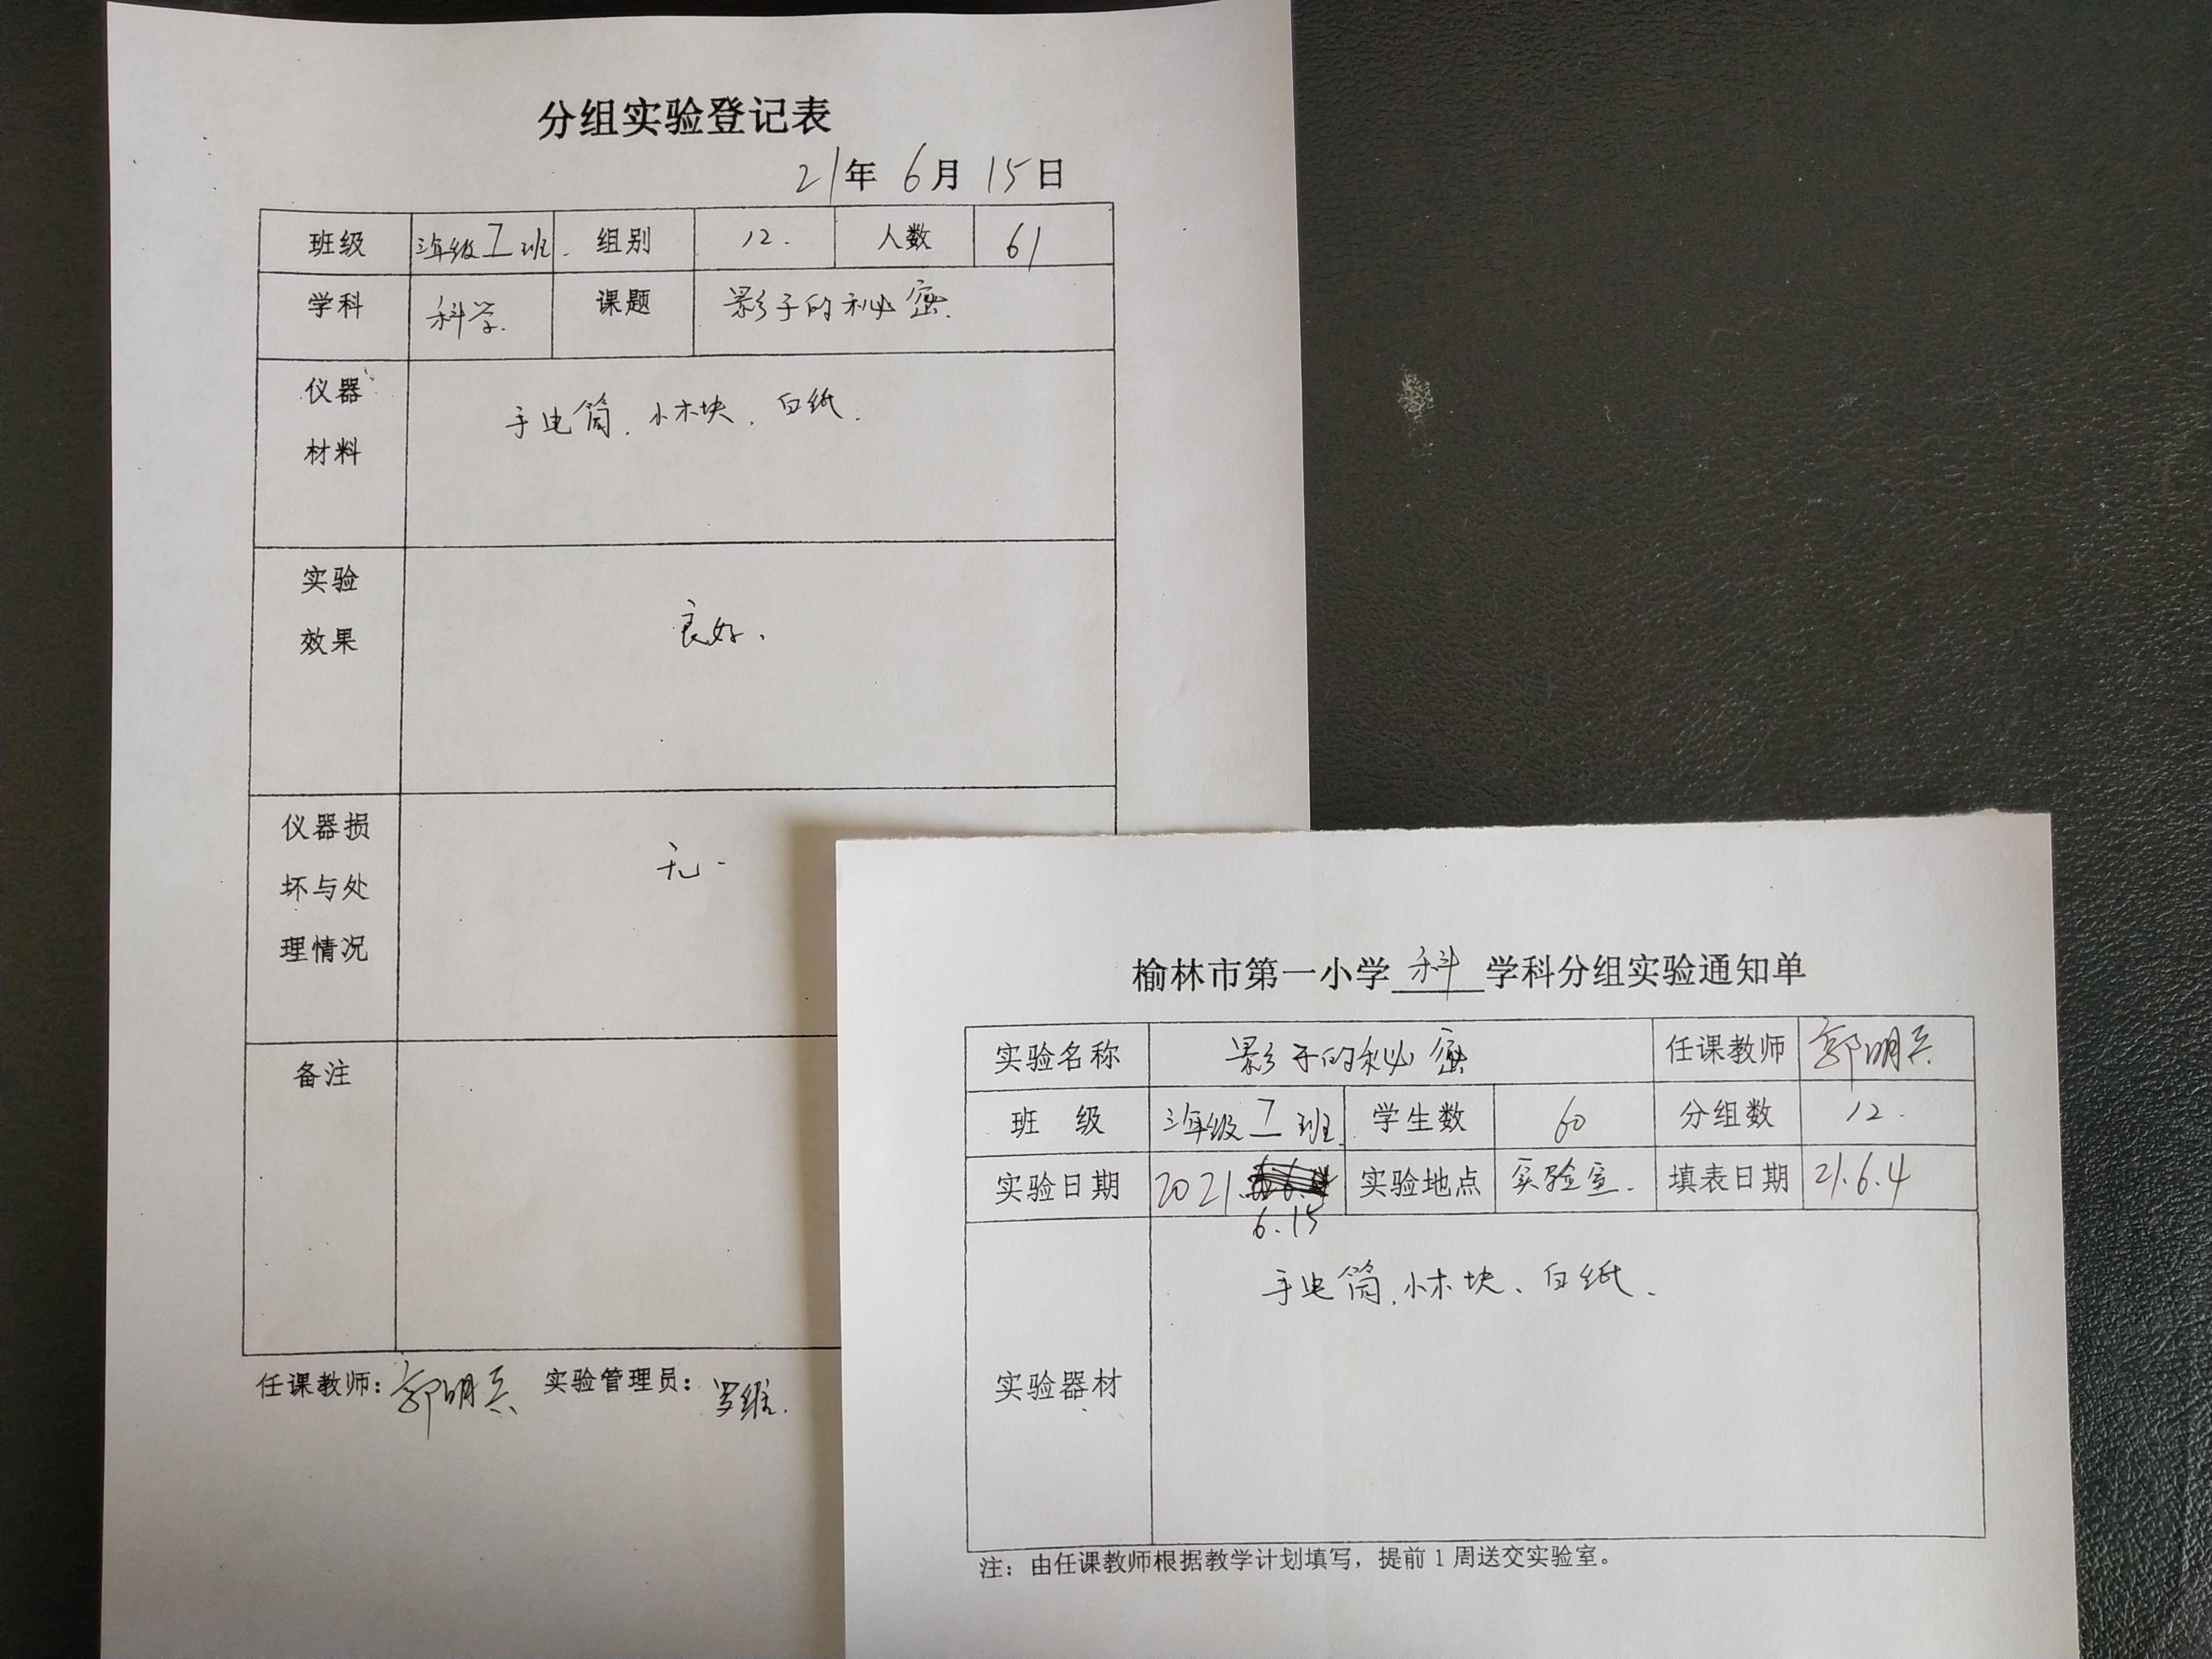 分组实验登记表
21年 6月 15日
班级 三年级 7 班. 组别 12. 人数 61
学科 科学. 课题 影子的秘密.
仪器 材料 手电筒、小木块、白纸.
实验 效果 良好.
仪器损 坏与处 理情况 无.
备注
任课教师: 郭明兵 实验管理员: 罗维.
榆林市第一小学 科 学科分组实验通知单
实验名称 影子的秘密 任课教师 郭明兵
班 级 三年级 7 班 学生数 60 分组数 12.
实验日期 2021. 6.15 实验地点 实验室. 填表日期 21.6.4
实验器材 手电筒、小木块、白纸.
注：由任课教师根据教学计划填写，提前 1 周送交实验室。